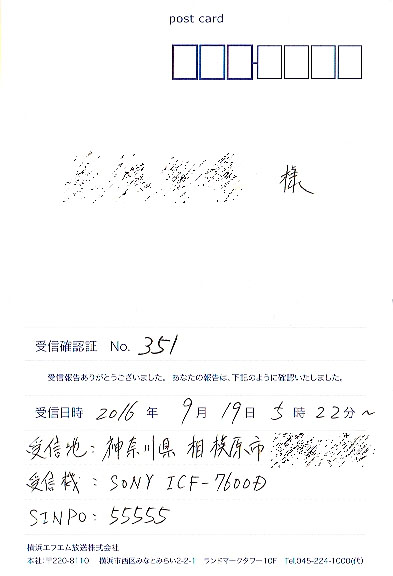 post card
様
受信確認証 No. 351
受信報告ありがとうございました。あなたの報告は、下記のように確認いたしました。
受信日時 2016 年 9 月 19 日 5 時 22 分 ～
受信地: 神奈川県 相模原市
受信機: SONY ICF-7600D
SINPO: 55555
横浜エフエム放送株式会社
本社:〒220-8110 横浜市西区みなとみらい2-2-1 ランドマークタワー10F Tel.045-224-1000(代)